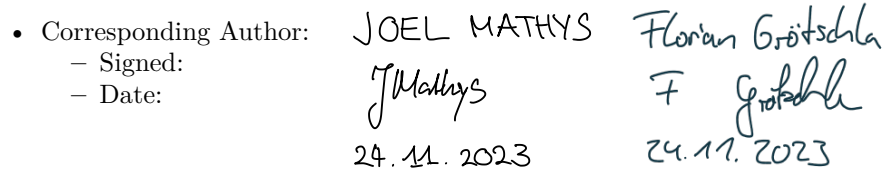 • Corresponding Author: JOEL MATHYS Florian Grötschla
– Signed: JMathys F Grötschla
– Date: 24.11.2023 24.11.2023